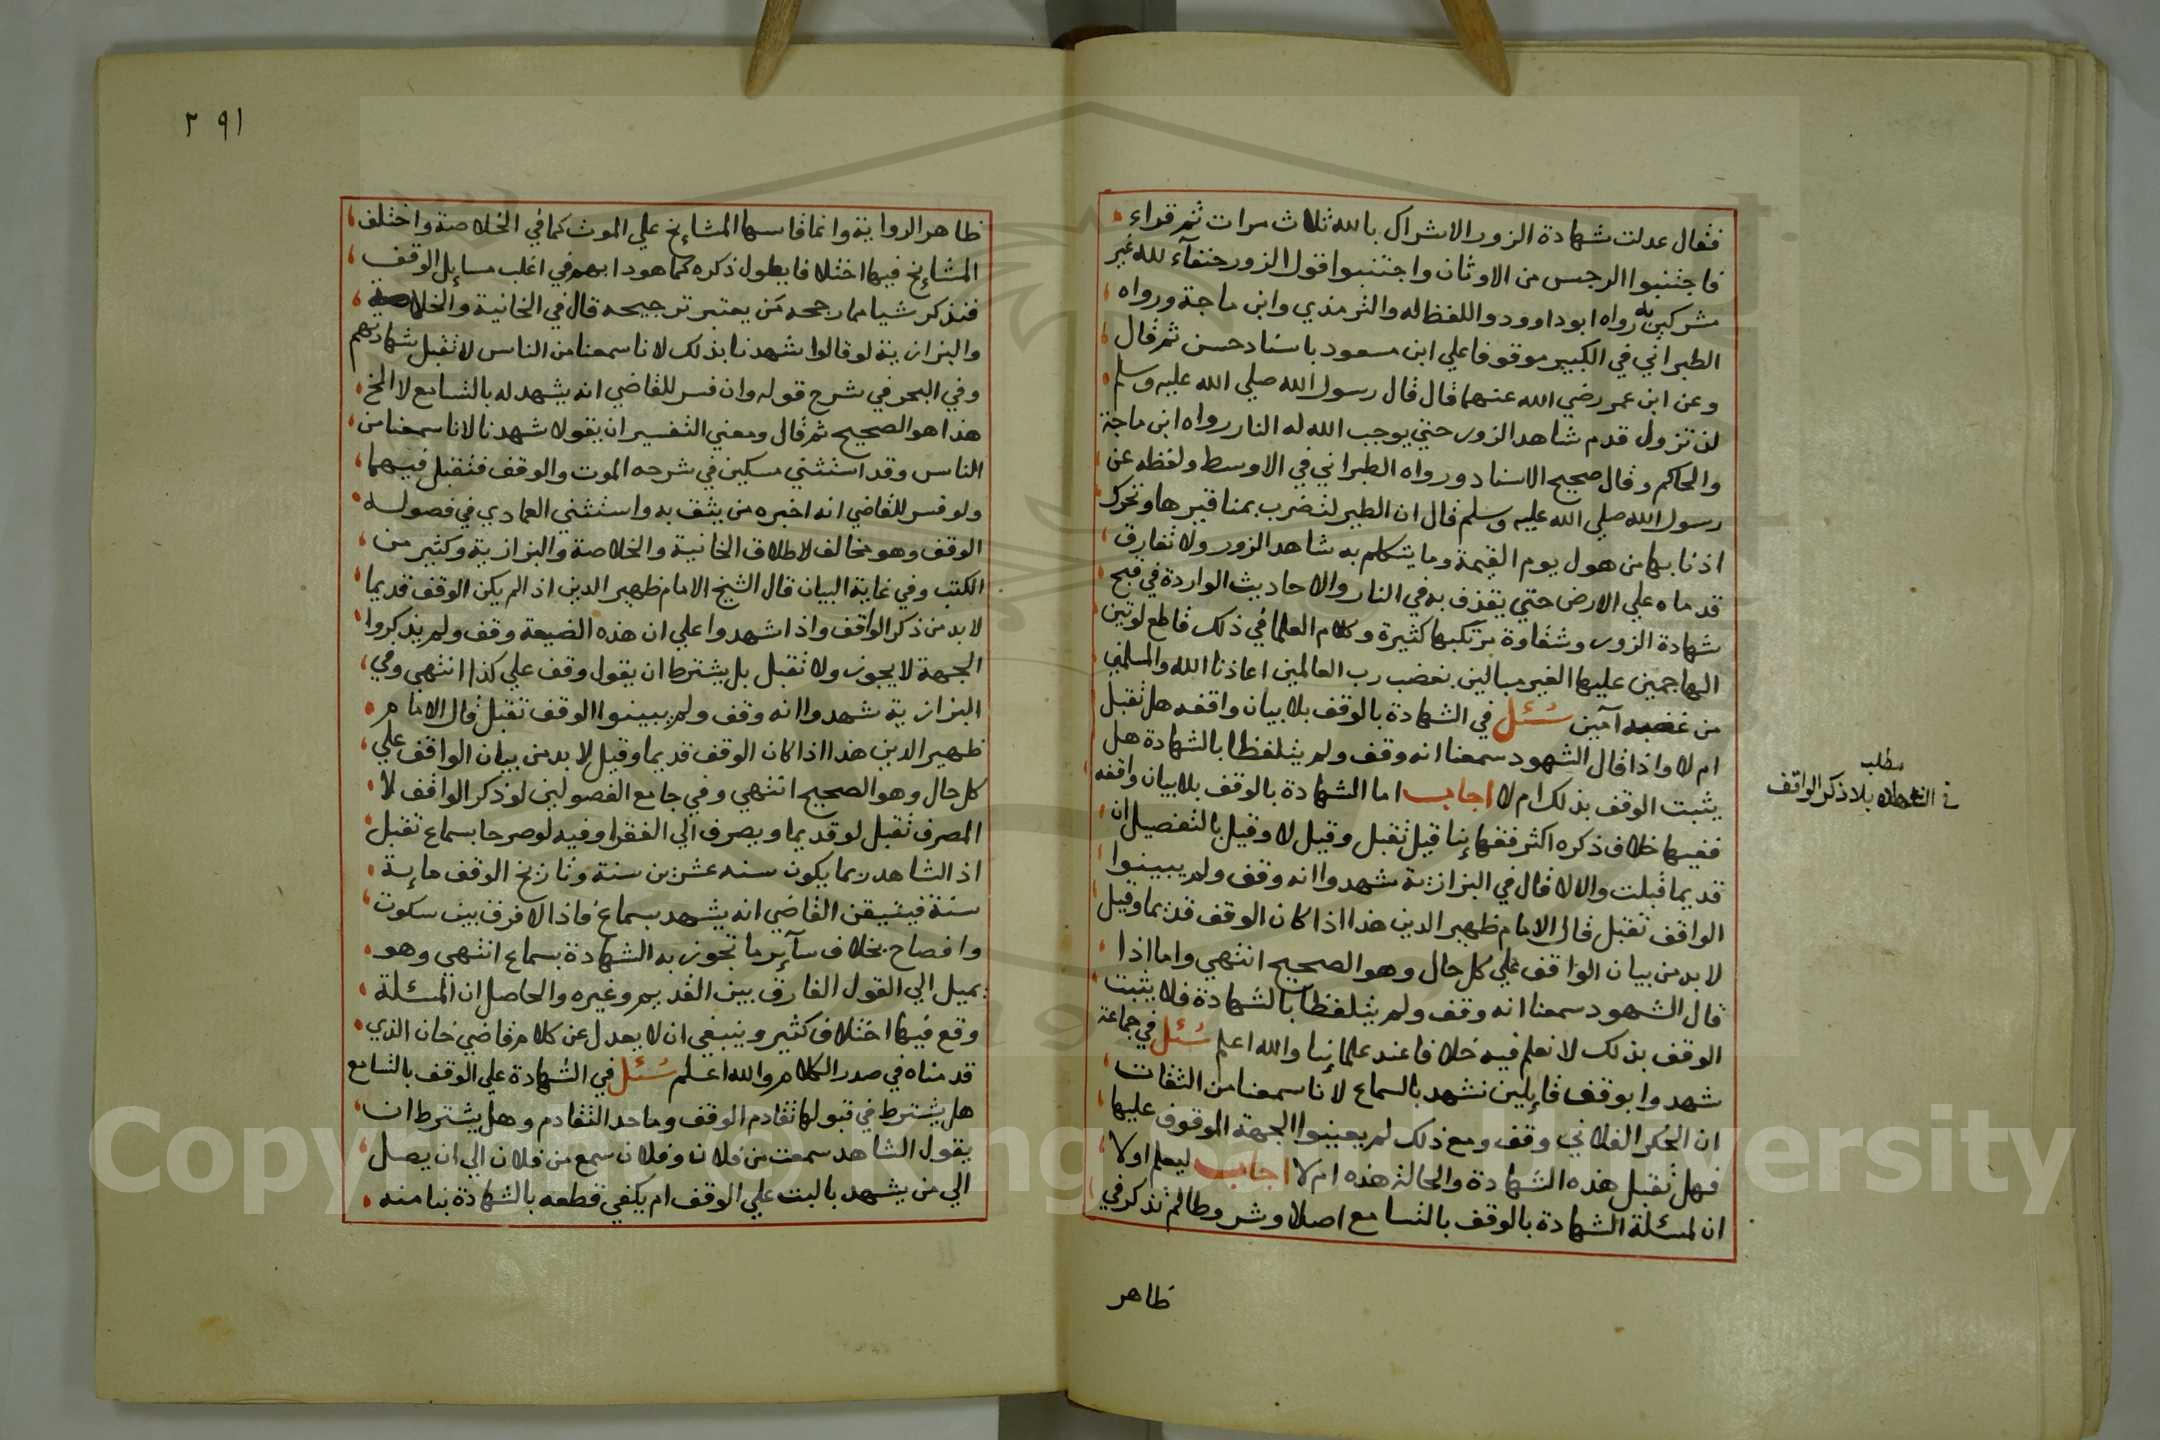 فقال عدلت شهادة الزور الاشراك بالله ثلاث مرات ثم قراء
فاجتنبوا الرجس من الاوثان واجتنبوا قول الزور حنفآء لله غير
مشركين به رواه ابو داوود واللفظ له والترمذي وابن ماجة ورواه
الطبراني في الكبير موقوفا علي ابن مسعود باسناد حسن ثم قال
وعن ابن عمر رضي الله عنهما قال قال رسول الله صلي الله عليه وسلم
لن تزول قدم شاهد الزور حتي يوجب الله له النار رواه ابن ماجة
والحاكم وقال صحيح الاسناد ورواه الطبراني في الاوسط ولفظه عن
رسول الله صلي الله عليه وسلم قال ان الطير لتضرب بمناقيرها وتحرك
اذنابها من هول يوم القيمة وما يتكلم به شاهد الزور ولا تفارق
قدماه علي الارض حتي يقذف به في النار والاحاديث الواردة في قبح
شهادة الزور وشقاوة مرتكبها كثيرة وكلام العلما في ذلك قاطع لوتين
الهاجمين عليها الغير مبالين بغضب رب العالمين اعاذنا الله والمسلمين
من غضبه آمين سُئل في الشهادة بالوقف بلا بيان واقفه هل تقبل
ام لا واذا قال الشهود سمعنا انه وقف ولم يتلفظا بالشهادة هل
يثبت الوقف بذلك ام لا اجاب اما الشهادة بالوقف بلا بيان واقفه
ففيها خلاف ذكره اكثر فقهاينا قيل تقبل وقيل لا وقيل بالتفصيل ان
قديما قبلت والا لا قال في البزازية شهدوا انه وقف ولم يبينوا
الواقف تقبل قال الامام ظهير الدين هذا اذا كان الوقف قديما وقيل
لا بد من بيان الواقف علي كل حال وهو الصحيح انتهي واما اذا
قال الشهود سمعنا انه وقف ولم يتلفظا بالشهادة فلا يثبت
الوقف بذلك لا نعلم فيه خلافا عند علمائنا والله اعلم سُئل في جماعة
شهدوا بوقف قايلين نشهد بالسماع لانا سمعنا من الثقات
ان الحكر الفلاني وقف ومع ذلك لم يعينوا الجهة الموقوف عليها
فهل تقبل هذه الشهادة والحالة هذه ام لا اجاب ليعلم اولا
ان لمسئلة الشهادة بالوقف بالتسامع اصلا وشروطا لم تذكر في
ظاهر
مطلب
في الشهادة بلا ذكر الواقف
٢٩١
ظاهر الرواية وانما قاسها المشايخ علي الموت كما في الخلاصة واختلف
المشايخ فيها اختلافا يطول ذكره كما هو دابهم في اغلب مسايل الوقف
فنذكر شيا مما رجحه مَن يعتبر ترجيحه قال في الخانية والخلاصة
والبزازية لو قالوا شهدنا بذلك لانا سمعنا من الناس لا تقبل شهادتهم
وفي البحر في شرح قوله وان فسر للقاضي انه يشهد له بالتسامع لا الخ
هذا هو الصحيح ثم قال ومعني التفسير ان يقولا شهدنا لانا سمعنا من
الناس وقد استثني مسكين في شرحه الموت والوقف فتقبل فيهما
ولو فسر للقاضي انه اخبره من يثق به واستثني العمادي في فصوله
الوقف وهو مخالف لاطلاق الخانية والخلاصة والبزازية وكثير من
الكتب وفي غاية البيان قال الشيخ الامام ظهير الدين اذا لم يكن الوقف قديما
لا بد من ذكر الواقف واذا شهدوا علي ان هذه الضيعة وقف ولم يذكروا
الجهة لا يجوز ولا تقبل بل يشترط ان يقول وقف علي كذا انتهي وفي
البزازية شهدوا انه وقف ولم يبينوا الوقف تقبل قال الامام
ظهير الدين هذا اذا كان الوقف قديما وقيل لا بد من بيان الواقف علي
كل حال وهو الصحيح انتهي وفي جامع الفصولين لو ذكر الواقف لا
المصرف تقبل لو قديما ويصرف الي الفقرا وفيه لو صرحا بسماع تقبل
اذ الشاهد ربما يكون سنه عشرين سنة وتاريخ الوقف ماية
سنة فيتيقن القاضي انه يشهد بسماع فاذا لا فرق بين سكوت
وافصاح بخلاف سآير ما تجوز به الشهادة بسماع انتهي وهو
يميل الي القول الفارق بين القديم وغيره والحاصل ان المسئلة
وقع فيها اختلاف كثير وينبغي ان لا يعدل عن كلام قاضي خان الذي
قدمناه في صدر الكلام والله اعلم سُئل في الشهادة علي الوقف بالتسامع
هل يشترط في قبولها تقادم الوقف وما حد التقادم وهل يشترط ان
يقول الشاهد سمعت من فلان وفلان سمع من فلان الي ان يصل
الي من يشهد بالبت علي الوقف ام يكفي قطعه بالشهادة بنا منه
Copyright © King Saud University